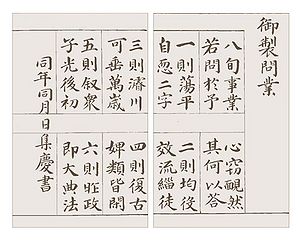 御製問業
八旬事業
若問於予
心窃靦然
其何以答
一則蕩平
自恧二字
二則均役
效流緇徒
三則濬川
可垂萬歲
四則復古
婢類皆閒
五則叙衆
子光後初
六則昨政
即大典法
同年同月日集慶書